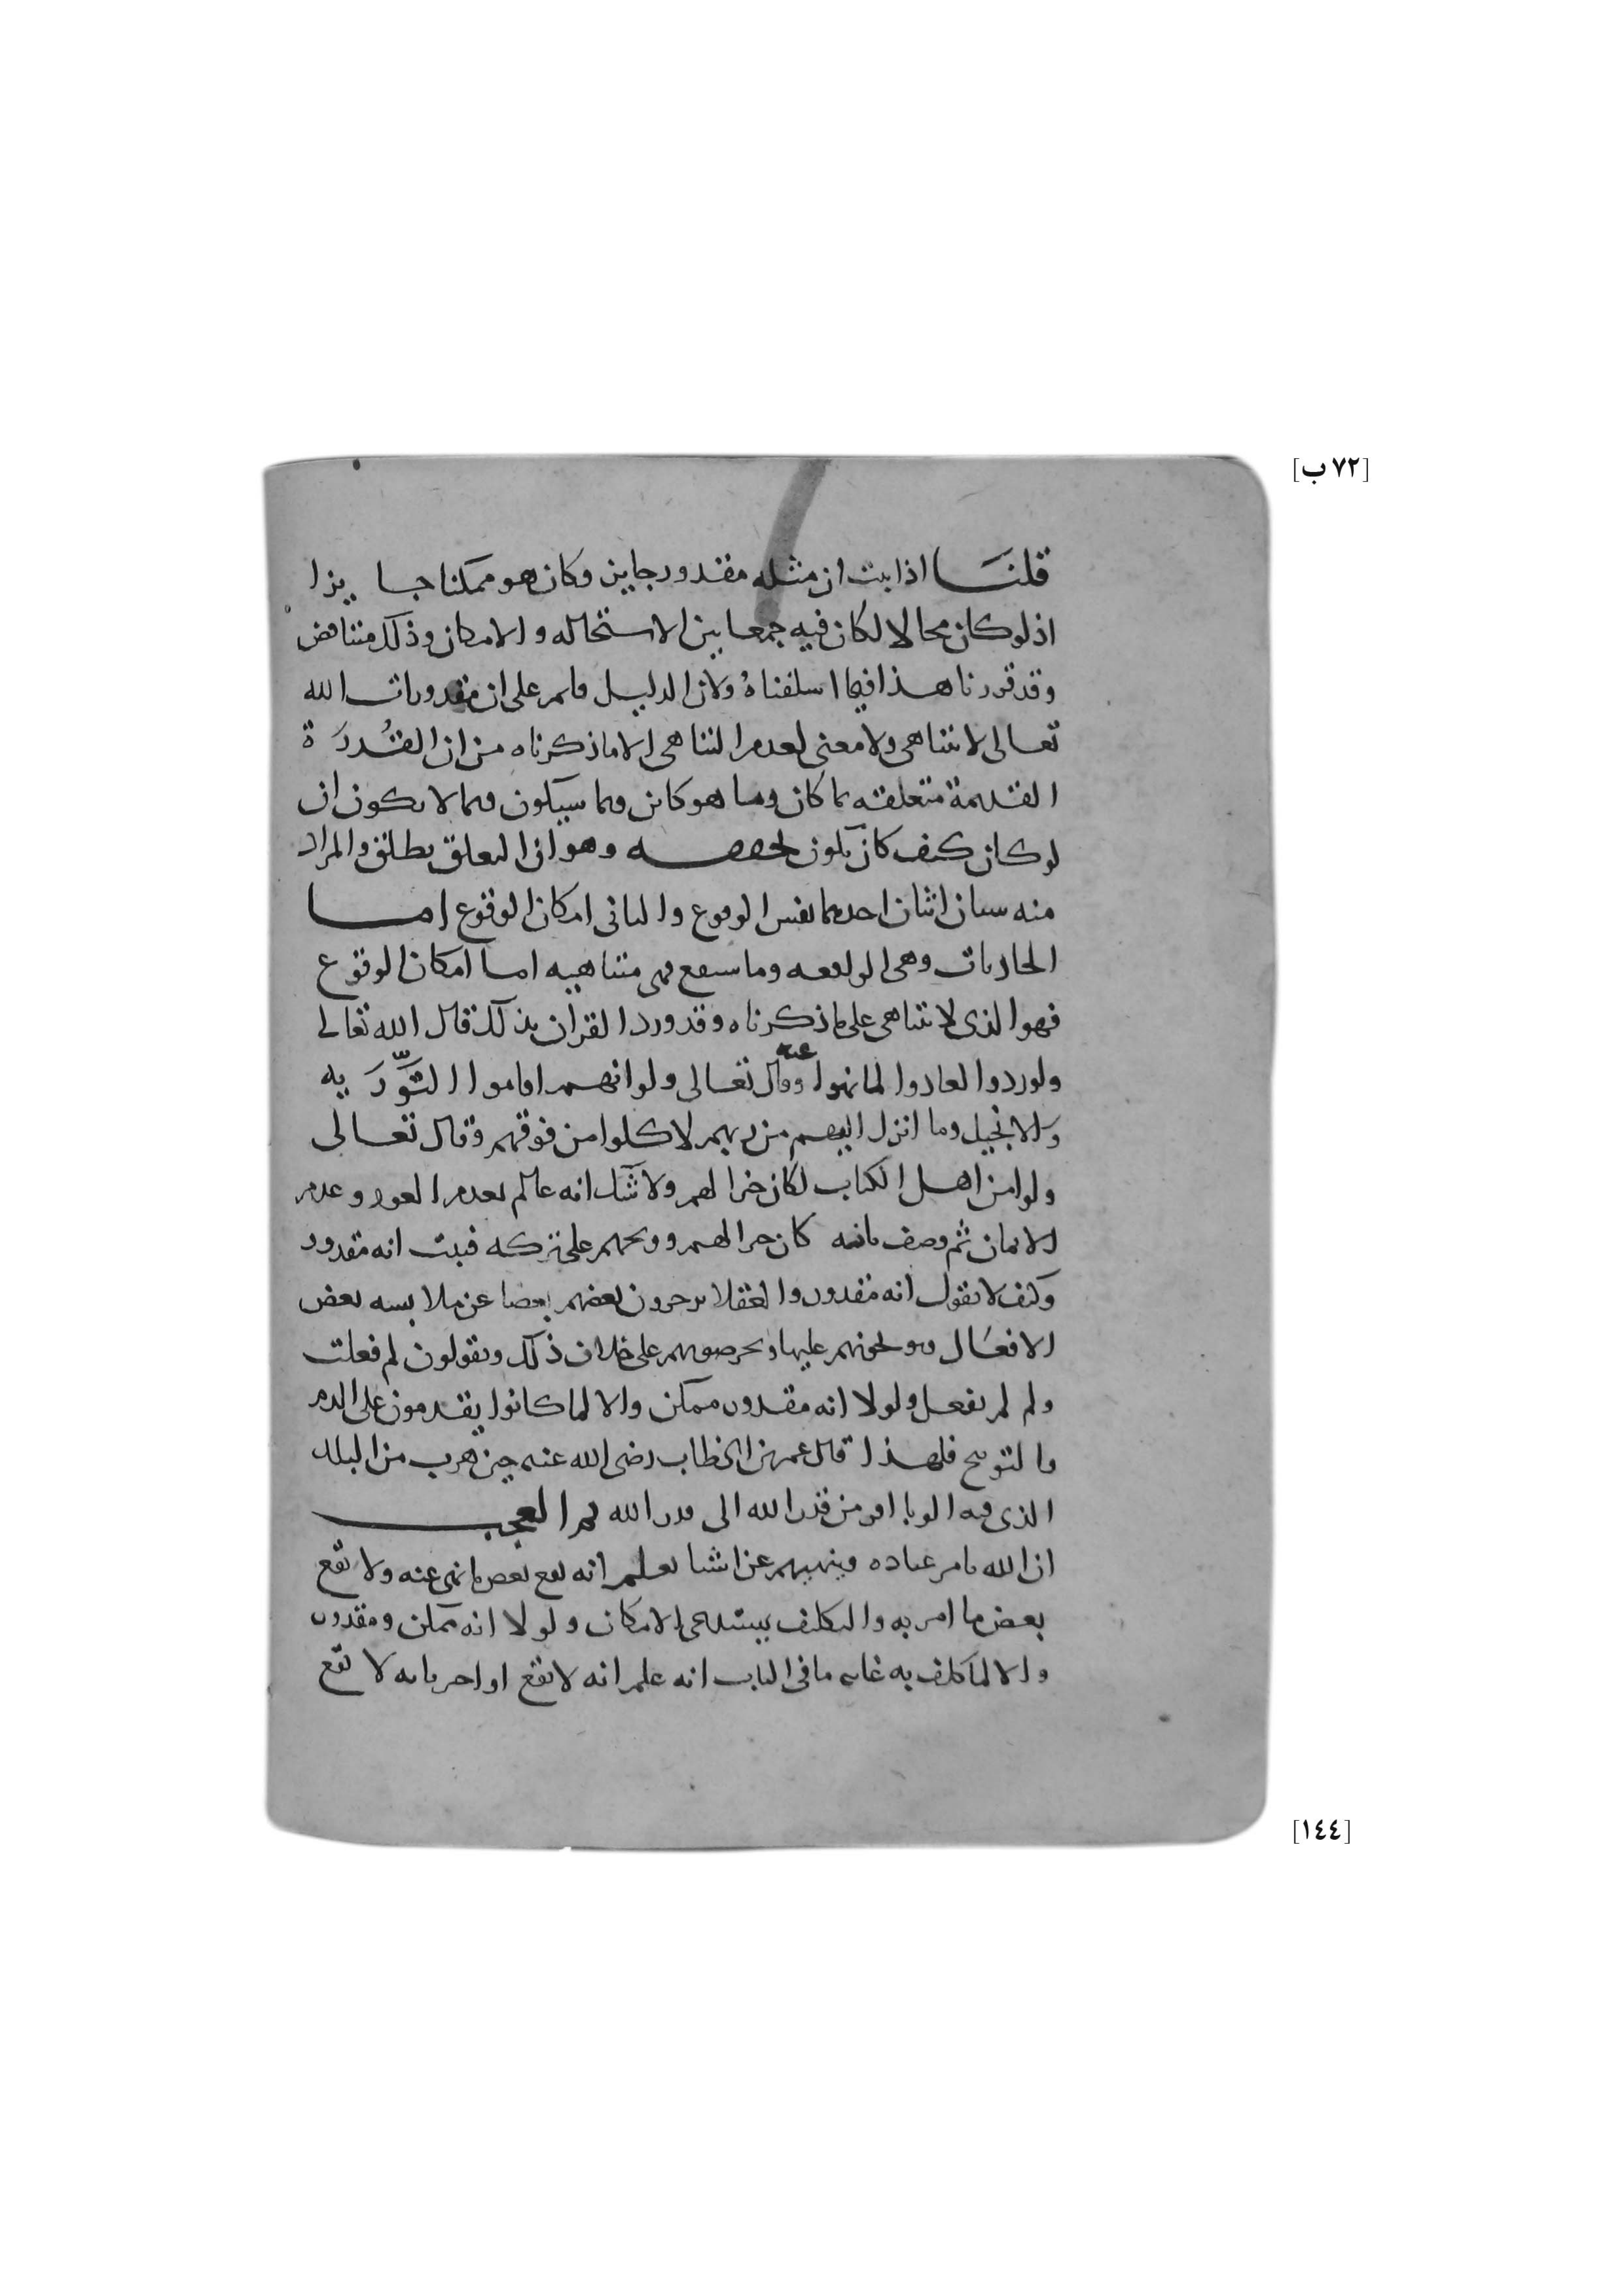 [٧٢ ب]
قلنا اذا ثبت ان مثله مقدور جايز وكان هو ممكنا جا يزا
اذ لو كان محالا لكان فيه جمعا بين الاستحاله والامكان وذلك متناقض
وقد قررنا هذا فيما اسلفناهُ ولان الدليل قام على ان مقدورات الله
تعالى لا تتناهى ولا معنى لعدم التناهى الا ما ذكرناه من ان القُدرَ ة
القديمة متعلقه بما كان وما هو كاين وما سيكون وما لا يكون ان
لو كان كيف كان يكون وهو ان التعلق يطلق والمراد
منه شيان اثنان احدهما نفس الوقوع والثانى امكان الوقوع اما
الحادثات وهى الواقعه وما سيقع فهى متناهيه اما امكان الوقوع
فهو الذى لا يتناهى على ما ذكرناه وقد ورد القران بذلك قال الله تعالى
ولو ردوا لعادوا لما نهوا عنه وقال تعالى ولو انهم اقاموا التوّرَ يه
والانجيل وما انزل اليهم من ربهم لاكلوا من فوقهم وقال تعالى
ولو امن اهل الكتاب لكان خيرا لهم ولا شك انه عالم بعدم العود وعدم
الايمان ثم وصف بانه كان خيرا لهم ووبخهم على تركه فثبت انه مقدور
وكيف لا نقول انه مقدور والعقلا يزجرون بعضهم بعضا عن ملابسه بعض
الافعال ويوبخونهم عليها ويحرضونهم على خلاف ذلك ويقولون لم فعلت
ولم لم تفعل ولولا انه مقدور ممكن والا لما كانوا يقدمون على الذم
والتوبيخ فلهذا قال عمر بن الخطاب رضى الله عنه حين هرب من البلد
الذى فيه الوبا افر من قدر الله الى قدر الله ثم العجب
ان الله يامر عباده وينهيهم عن اشيا يعلم انه يقع بعض ما نهى عنه ولا يقع
بعض ما امر به والتكليف يستدعى الامكان ولولا انه ممكن ومقدور
والا لما كلف به غايه ما فى الباب انه علم انه لا يقع او اخر بانه لا يقع
[١٤٤]